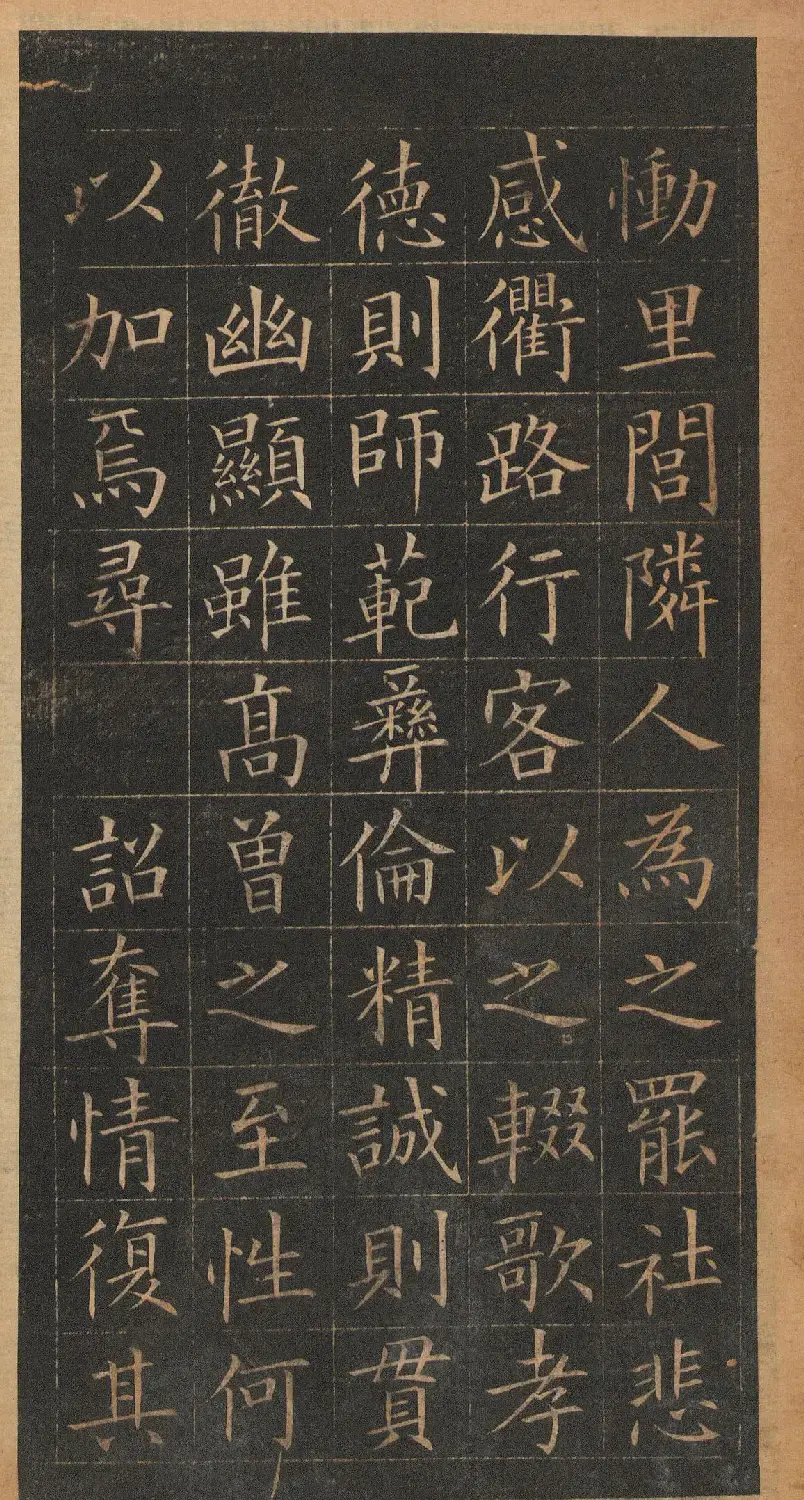 慟里閭隣人為之罷社悲
感衢路行客以之輟歌孝
德則師範彝倫精誠則貫
徹幽顯雖高曾之至性何
以加焉尋詔奪情復其